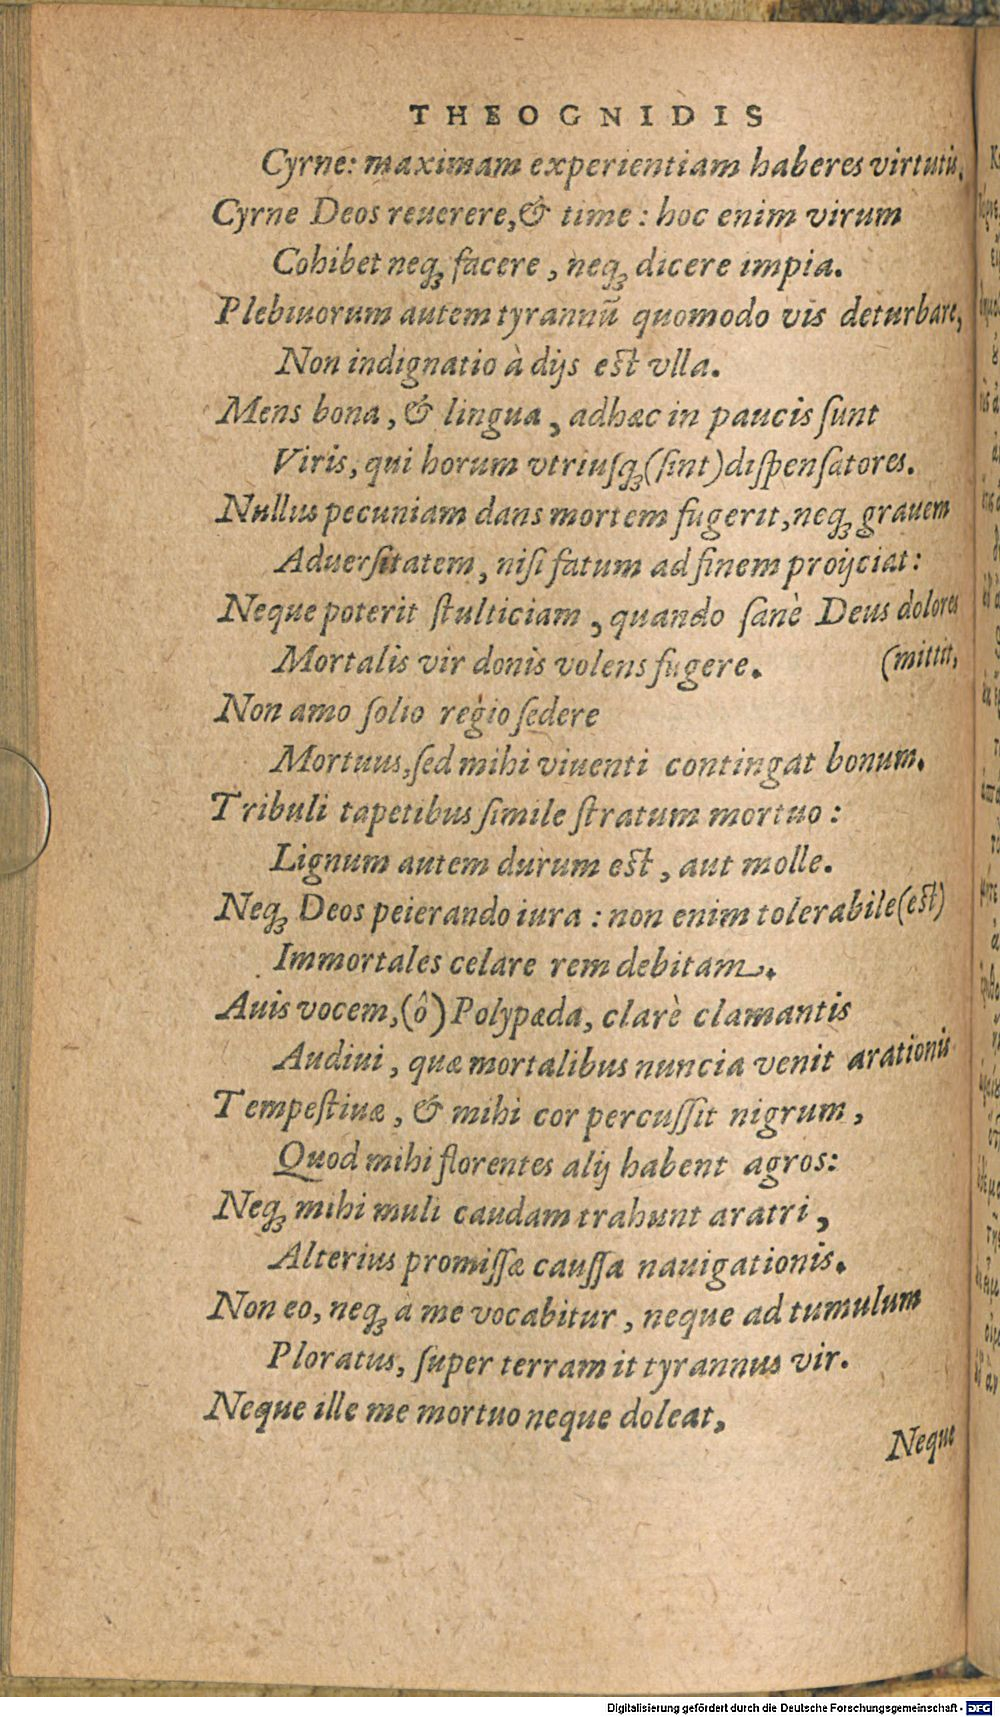 THEOGNIDIS
Cyrne: maximam experientiam haberes virtutis.
Cyrne Deos reuerere, & time: hoc enim virum
Cohibet neqꝫ facere, neqꝫ dicere impia.
Plebeiorum autem tyrannū quomodo vis deturbare,
Non indignatio à dijs eſt vlla.
Mens bona, & lingua, adhæc in paucis ſunt
Viris, qui horum vtriuſqꝫ (ſint) diſpenſatores.
Nullus pecuniam dans mortem fugerit, neqꝫ grauem
Aduerſitatem, niſi fatum ad finem proijciat:
Neque poterit ſtulticiam, quando ſanè Deus dolores
Mortalis vir donis volens fugere. (mittit,
Non amo ſolio regio ſedere
Mortuus, ſed mihi viuenti contingat bonum.
Tribuli tapetibus ſimile ſtratum mortuo:
Lignum autem durum eſt, aut molle.
Neqꝫ Deos peierando iura: non enim tolerabile (eſt)
Immortales celare rem debitam.
Auis vocem, (ô) Polypæda, clarè clamantis
Audiui, quæ mortalibus nuncia venit arationis
Tempeſtiuæ, & mihi cor percuſſit nigrum,
Quod mihi florentes alij habent agros:
Neqꝫ mihi muli caudam trahunt aratri,
Alterius promiſſæ cauſſa nauigationis.
Non eo, neqꝫ à me vocabitur, neque ad tumulum
Ploratus, ſuper terram it tyrannus vir.
Neque ille me mortuo neque doleat,
Neque
Digitalisierung gefördert durch die Deutsche Forschungsgemeinschaft - DFG